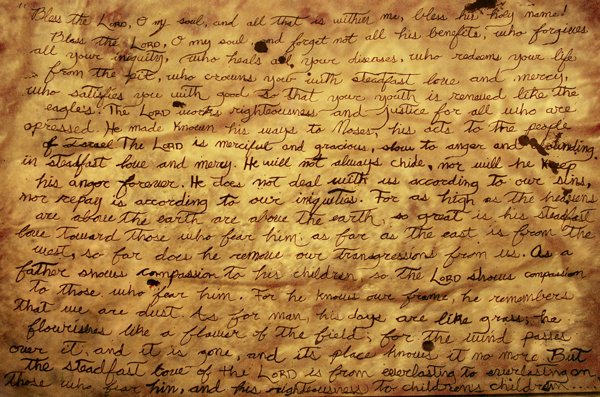 "Bless the Lord, O my soul, and all that is within me, bless his holy name!
Bless the Lord, O my soul, and forget not all his benefits, who forgives
all your iniquity, who heals all your diseases, who redeems your life
from the pit, who crowns you with steadfast love and mercy,
who satisfies you with good so that your youth is renewed like the
eagle's. The Lord works righteousness and justice for all who are
opressed. He made known his ways to Moses, his acts to the people
of Israel The Lord is merciful and gracious, slow to anger and abounding
in steadfast love and mercy. He will not always chide, nor will he keep
his anger forever. He does not deal with us according to our sins,
nor repay is according to our iniquities. For as high as the heavens
are above the earth are above the earth, so great is his steadfast
love toward those who fear him. as far as the east is from the
west, so far does he remove our transgressions from us. As a
father shows compassion to his children so the Lord shows compassion
to those who fear him. For he knows our frame, he remembers
that we are dust. As for man, his days are like grass; he
flourishes like a flower of the field; for the wind passes
over it, and it is gone, and its place knows it no more. But
the steadfast love of the Lord is from everlasting to everlasting on
those who fear him, and his righteousness to childrens children....